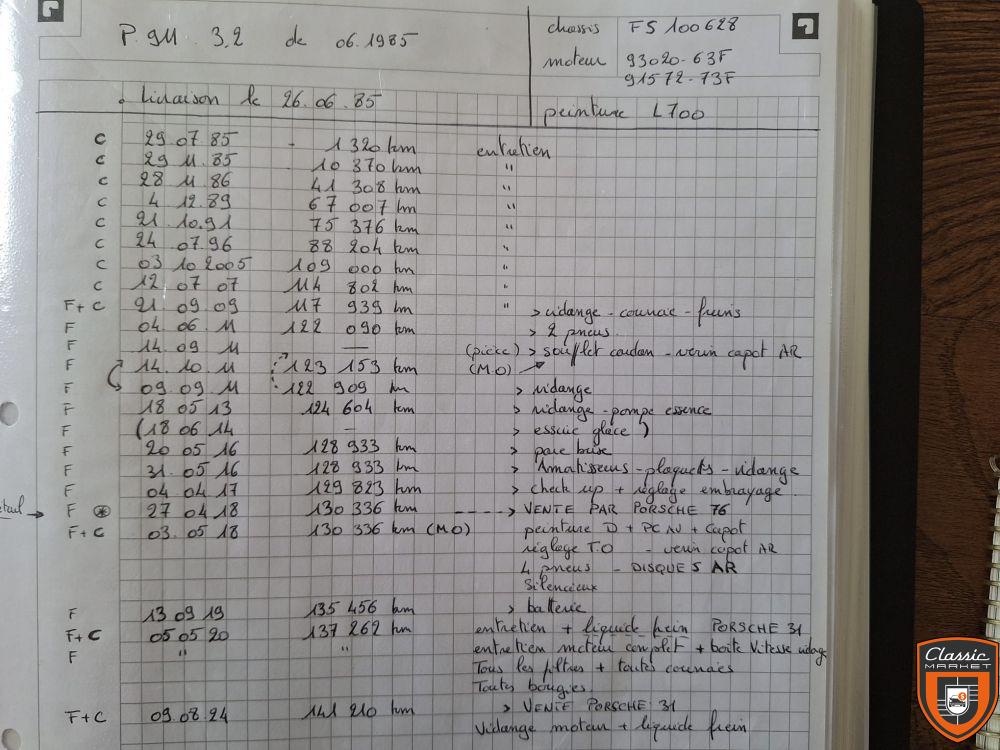 P. 911 3,2 de 06.1985
chassis FS 100628
moteur 93020-63F
91572-73F
. Livraison le 26.06.85
peinture L700
C 29.07.85 - 1 320 km entretien
C 29 11.85 10 370 km "
C 28 11 86 41 308 km "
C 4 12.89 67 007 km "
C 21.10.91 75 376 km "
C 24 07.96 88 204 km "
C 03 10 2005 109 000 km "
C 12 07 07 114 802 km "
F+C 21 09 09 117 939 km " > vidange - courroie - freins
F 04 06 11 122 090 km > 2 pneus.
F 14.09 11 — (pièce) > soufflet cardan - verin capot AR
F 14.10.11 123 153 km (M.O)
F 09.09.11 122 909 km > vidange
F 18 05 13 124 604 km > vidange - pompe essence
F (18 06 14 — > essuie glace)
F 20 05 16 128 933 km > pare brise
F 31.05 16 128 933 km > Amortisseurs - plaquettes - vidange
F 04 04 17 129 823 km > check up + réglage embrayage.
F 27 04 18 130 336 km ----> VENTE PAR PORSCHE 76
F+C 03.05 18 130 336 km (MO) peinture D + PC AV + Capot
réglage T.O - verin capot AR
4 pneus - DISQUES AR
Silencieux
F 13 09 19 135 456 km > batterie
F+C 05 05 20 137 262 km entretien + liquide frein PORSCHE 31
F " " entretien moteur complet + boite vitesse vidage
Tous les filtres + toutes courroies
Toutes bougies.
F+C 09.08.24 141 210 km > VENTE PORSCHE 31
Vidange moteur + liquide frein
Classic
MARKET